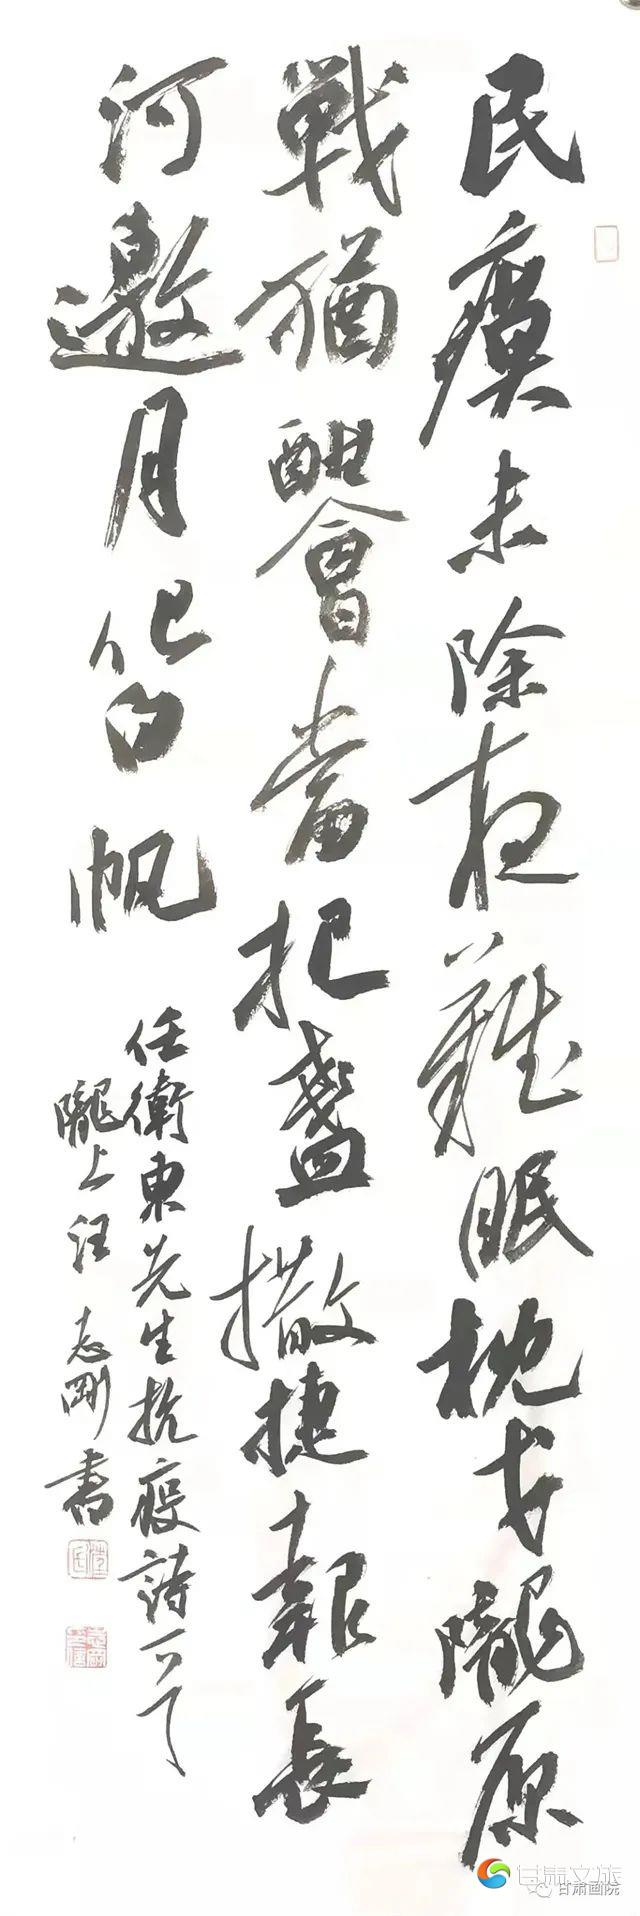 民瘼未除夜難眠枕戈隴原
戰猶酣會當把盞撒捷報長
河邀月化白帆
任衛東先生抗疫詩一首
隴上汪志剛書
甘肃文旅
甘肃画院